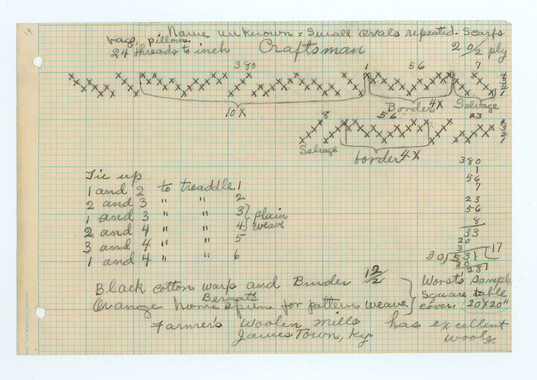 Name unknown = Small ovals repeated. Scarfs
bags, pillows.
24 threads to inch Craftsman 20/2 ply
380 1 56 7
4
3
2
1
10X Border 4X Selvage
8 56 23
4
3
2
1
Selvage border 4X
Tie up
1 and 2 to treaddle 1
2 and 3 " " 2
1 and 3 " " 3 } plain
2 and 4 " " 4 } weave
3 and 4 " " 5
1 and 4 " " 6
380
1
56
7
23
56
8
33
20
Black cotton warp and Binder 12/2
Orange homespun for pattern weave
Bernat's
Worst sample
square table
cover. 20"X20"
Farmers Woolen Mills has excellent
James Town, Ky wools